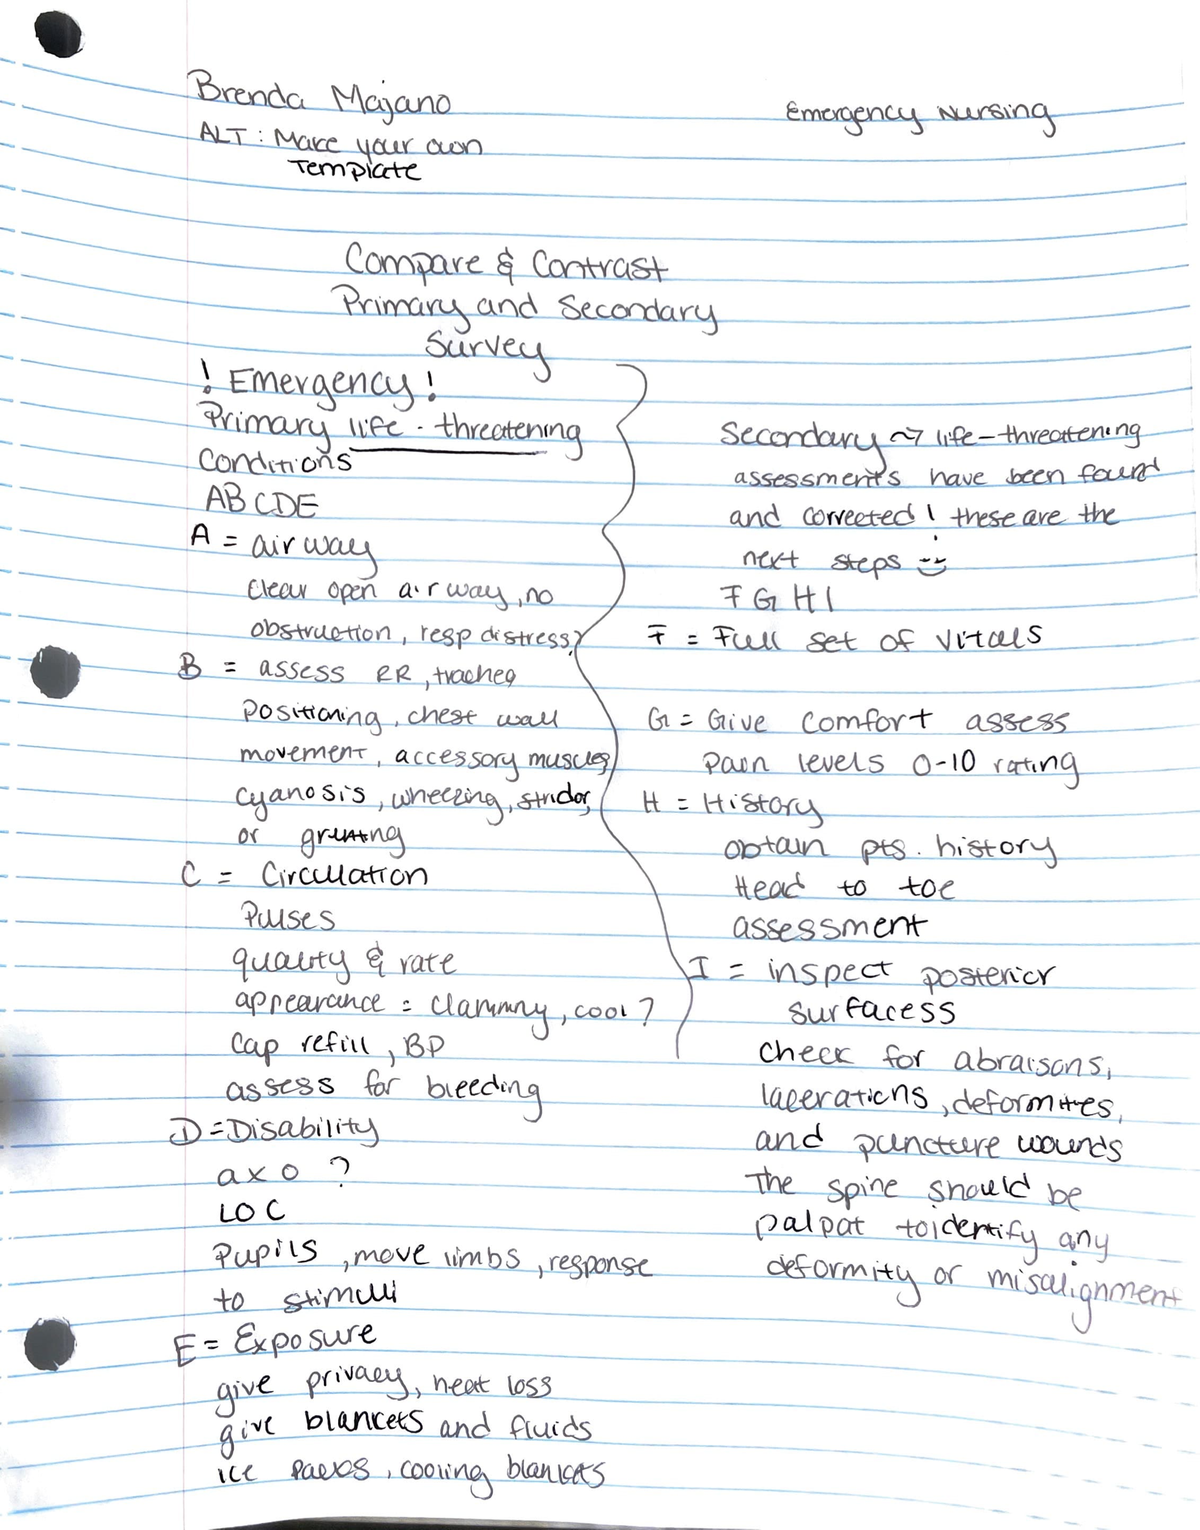 Brenda Majano
Emergency Nursing
ALT : Make your own
Template
Compare & Contrast
Primary and Secondary
Survey
! Emergency !
Primary life - threatening
Conditions
ABCDE
A = airway
Clear open airway, no
obstruction, resp distress?
B = assess RR, trachea
positioning, chest wall
movement, accessory muscles,
cyanosis, wheezing, stridor,
or grunting
C = Circulation
Pulses
quality & rate
appearance = clammy, cool ?
Cap refill, BP
assess for bleeding
D = Disability
axo ?
LOC
Pupils, move limbs, response
to stimuli
E = Exposure
give privacy, heat loss
give blankets and fluids
ice packs, cooling blankets
Secondary ~> life-threatening
assessments have been found
and corrected ! these are the
next steps
FGHI
F = Full set of vitals
G = Give comfort assess
Pain levels 0-10 rating
H = History
obtain pts. history
Head to toe
assessment
I = inspect posterior
surfacess
check for abraisons,
lacerations, deformites,
and puncture wounds
The spine should be
palpat to identify any
deformity or misalignment